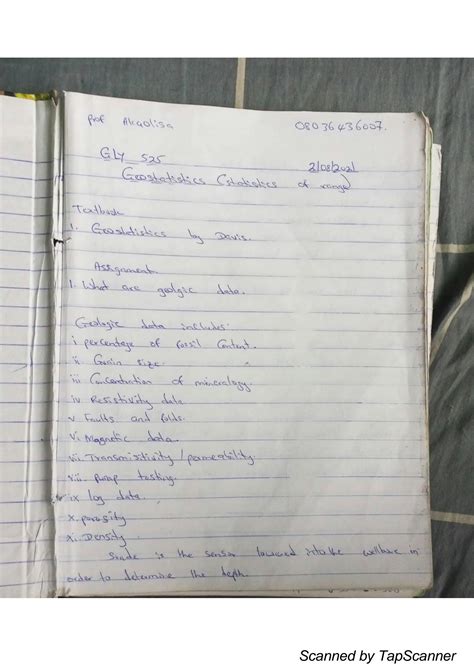 Prof Akaolisa 08036436007.
GLY 525 2/08/2021
Geostatistics (statistics of range)
Textbook
1. Geostatistics by Davis.
Assignment
1. What are geolgic data.
Geologic data includes:
i percentage of fossil Content.
ii. Grain size.
iii Concentration of mineralogy.
iv Resistivity data
v Faults and folds.
vi. Magnetic data.
vii. Transmisitivity / permeability.
viii. pump testing.
ix log data.
x. porosity
xi. Density
Sonde is the sensor lowered into the wellbore in
order to determine the depth.
Scanned by TapScanner